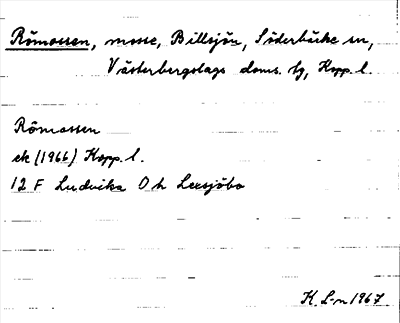 Römossen, mosse, Billsjön, Söderbärke sn,
Västerbergslags doms. tg, Kopp. l.
Römossen
ek (1966) Kopp. l.
12 F Ludvika Ö h Lersjöbo
K. L-n 1967